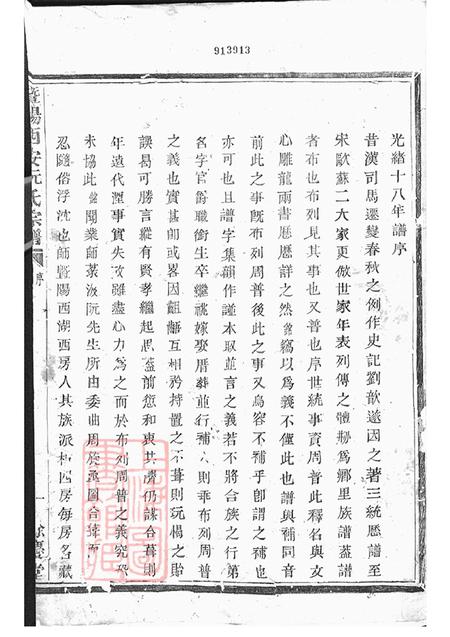 913913
光緒十八年譜序
昔漢司馬遷變春秋之例作史記劉歆遂因之著三統歷譜至
宋歐蘇二大家更倣世家年表列傳之體刱為鄉里族譜蓋譜
者布也布列見其事也又普也序世統事資周普此釋名與文
心雕龍兩書歷歷詳之然翁竊以為義不僅此也譜與補同音
前此之事既布列周普後此之事又烏容不補乎卽謂之補也
亦可也且譜字集韻作謹本取並言之義若不將合族之行第
名字官爵職銜生卒繼祧嫁娶厝葬並行補入則乖布列周普
之義也實甚卽或畧因齟齬互相矜持置之不葺則玩愒之貽
誤曷可勝言縱有賢孝繼起思蓋前愆和衷共濟仍謀合葺則
年遠代湮事實失攷雖盡心力為之而於布列周普之義究
未協此翁聞業師菉漪阮先生所由委曲周旋承圖合葺而
忍隨俗浮沈也師暨陽西湖西房人其族派衍四房每房各藏
暨陽西安阮氏宗譜
序
一
餘慶堂